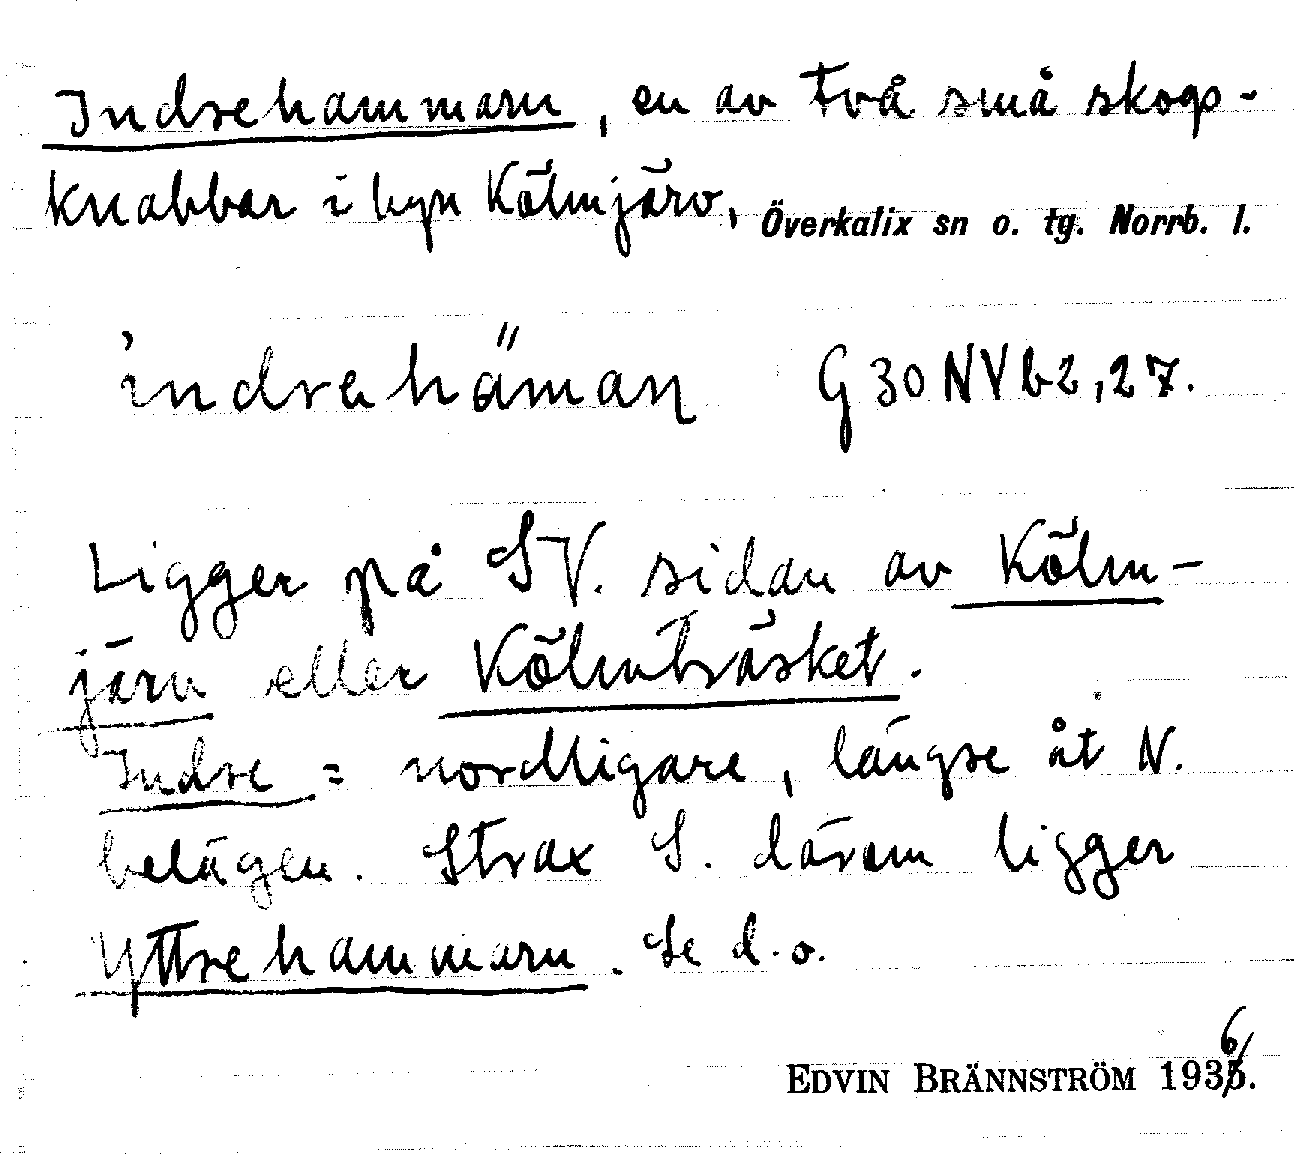 Indrehammarn, en av två små skogs-
knabbar i byn Kölmjärv, Överkalix sn o. tg. Norrb. l.
ìndrahä̀man G 30 NV b2, 27.
Ligger på SV. sidan av Kölm-
järv eller Kölmträsket.
Indre = nordligare, längre åt N.
belägen. Strax S. därom ligger
Yttrehammarn. Se d. o.
EDVIN BRÄNNSTRÖM 1936.